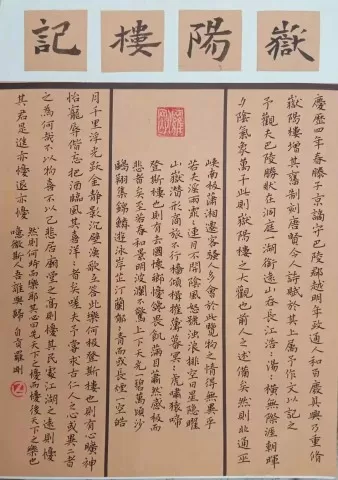 嶽陽樓記
慶歷四年春滕子京謫守巴陵郡越明年政通人和百廢具興乃重脩
嶽陽樓增其舊制刻唐賢今人詩賦於其上屬予作文以記之
予觀夫巴陵勝狀在洞庭一湖銜遠山吞長江浩々湯々橫無際涯朝暉
夕陰氣象萬千此則嶽陽樓之大觀也前人之述備矣然則北通巫
峽南極瀟湘遷客騷人多會於此覽物之情得無異乎
若夫淫雨霏々連月不開陰風怒號濁浪排空日星隱曜
山嶽潛形商旅不行檣傾楫摧薄暮冥々虎嘯猿啼
登斯樓也則有去國懷鄉憂讒畏譏滿目蕭然感極而
悲者矣至若春和景明波瀾不驚上下天光一碧萬頃沙
鷗翔集錦鱗遊泳岸芷汀蘭郁々青々而或長煙一空皓
月千里浮光躍金靜影沉璧漁歌互答此樂何極登斯樓也則有心曠神
怡寵辱偕忘把酒臨風其喜洋々者矣嗟夫予嘗求古仁人之心或異二者
之為何哉不以物喜不以己悲居廟堂之高則憂其民處江湖之遠則憂
其君是進亦憂退亦憂
然則何時而樂耶其必曰先天下之憂而憂後天下之樂也
噫微斯人吾誰與歸 自貢羅剛